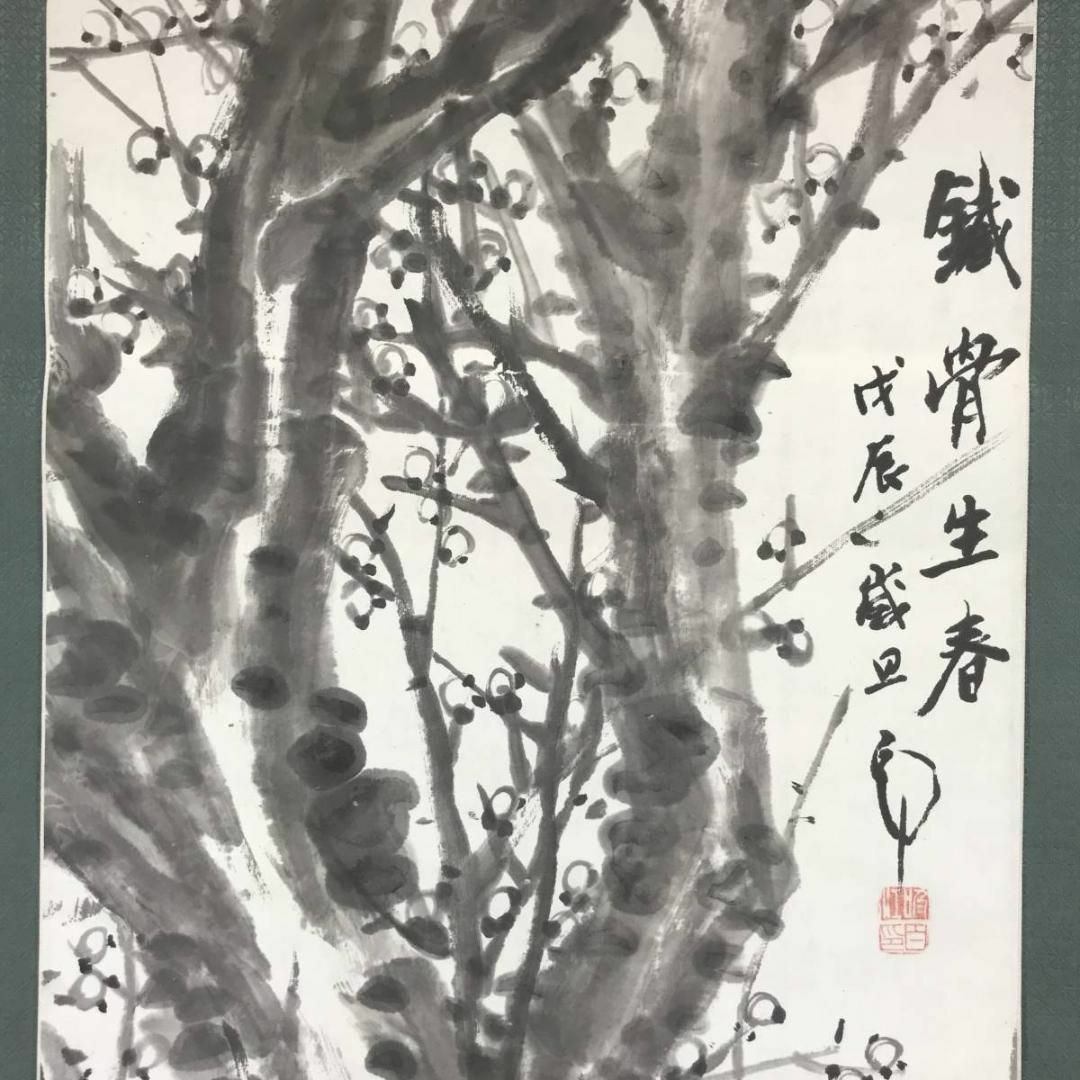 鐵骨生春
戊辰之歲旦